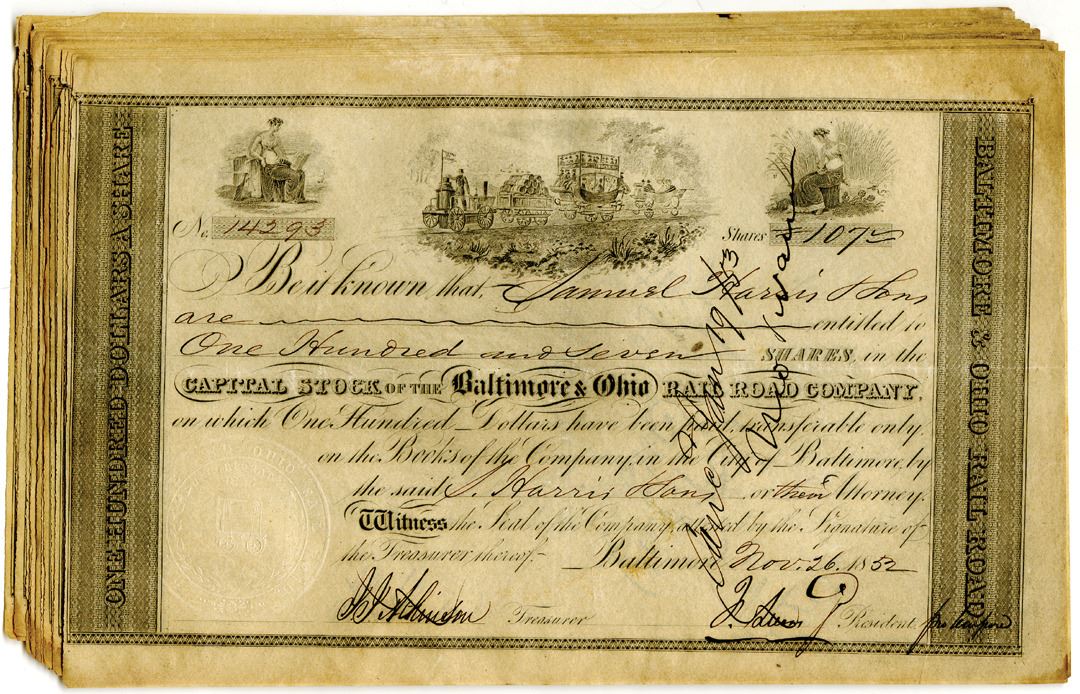 ONE HUNDRED DOLLARS A SHARE
BALTIMORE & OHIO RAIL ROAD
No. 14293
Shares 107
Be it known, that, Samuel Harris & Sons
are entitled to
One Hundred and Seven SHARES, in the
CAPITAL STOCK OF THE Baltimore & Ohio RAIL ROAD COMPANY,
on which One Hundred Dollars have been paid, transferable only
on the Books of the Company, in the City of Baltimore, by
the said S. Harris & Sons or their Attorney.
Witness the Seal of the Company, attested by the Signature of
the Treasurer thereof. Baltimore Nov. 26. 1852
J. J. Atkinson Treasurer
President pro tempore
1853